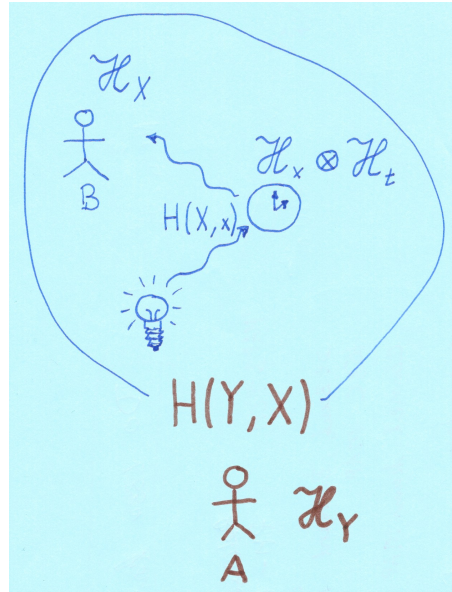 ℋ_X
ℋ_x ⊗ ℋ_t
B
H(X,x)
H(Y,X)
ℋ_Y
A